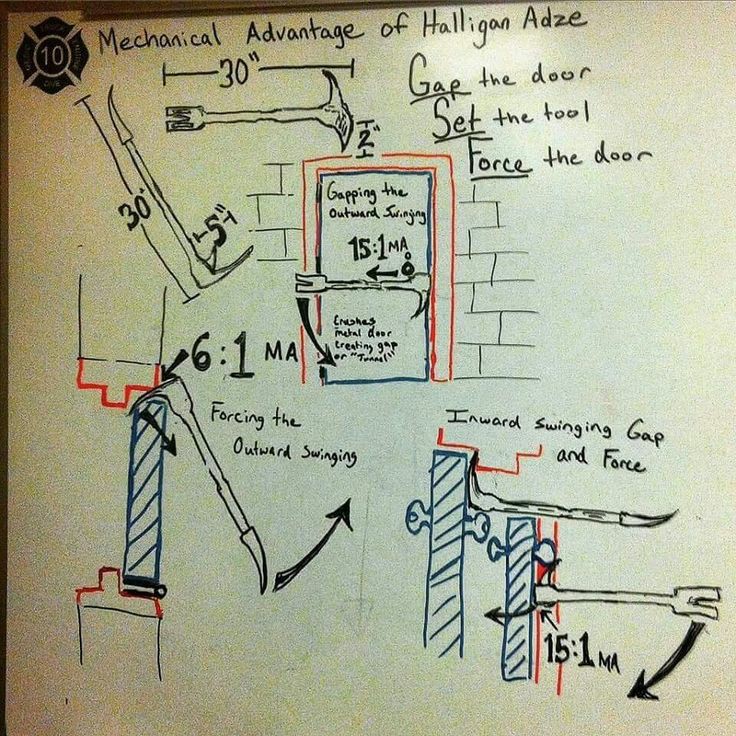 10
Mechanical Advantage of Halligan Adze
30"
Gap the door
Set the tool
Force the door
2"
30"
5"
Gapping the
Outward Swinging
15:1 MA
Crushes
metal door
creating gap
or "Tunnel"
6:1 MA
Forcing the
Outward Swinging
Inward swinging Gap
and Force
15:1 MA